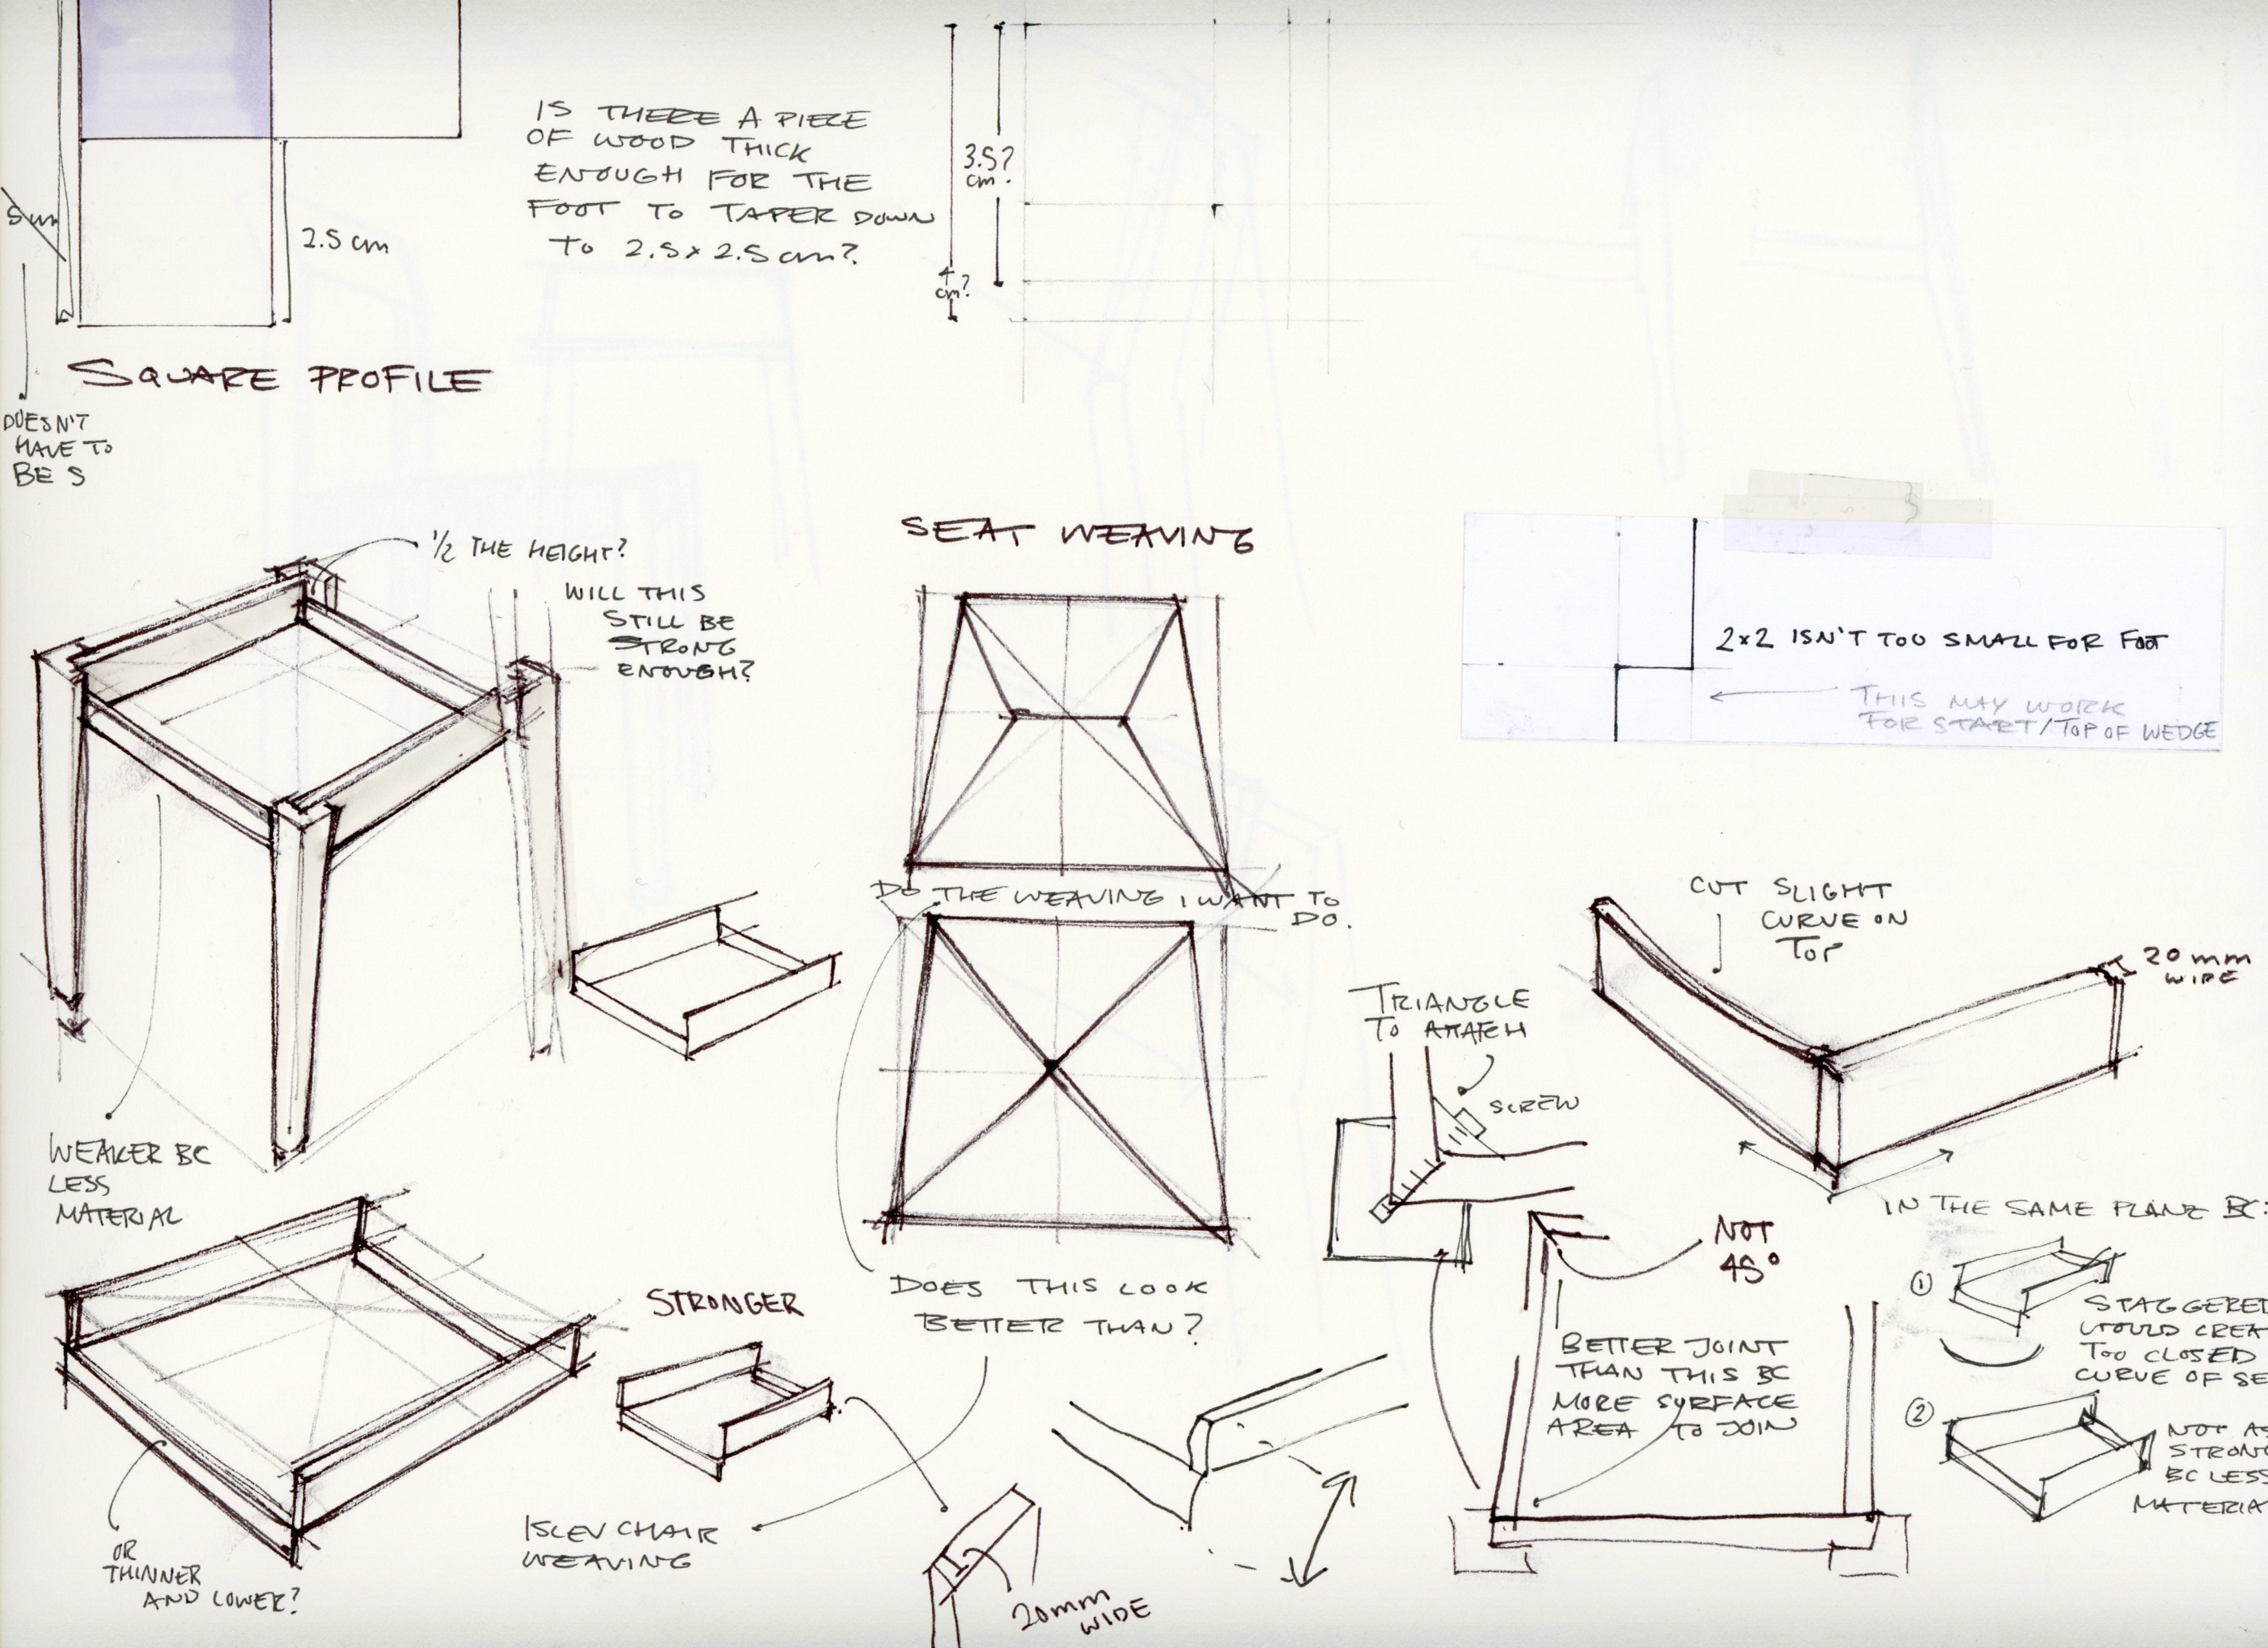 IS THERE A PIECE
OF WOOD THICK
ENOUGH FOR THE
FOOT TO TAPER DOWN
TO 2.5 x 2.5 cm?
3.5?
cm?
4
cm?
2.5 cm
SQUARE PROFILE
DOESN'T
HAVE TO
BE 5
1/2 THE HEIGHT?
WILL THIS
STILL BE
STRONG
ENOUGH?
SEAT WEAVING
2x2 ISN'T TOO SMALL FOR FOOT
THIS MAY WORK
FOR START/TOP OF WEDGE
DO THE WEAVING I WANT TO
DO.
CUT SLIGHT
CURVE ON
TOP
20 mm
WIDE
TRIANGLE
TO ATTATCH
SCREW
WEAKER BC
LESS
MATERIAL
IN THE SAME PLANE BC:
NOT
45°
1
STAGGERED
WOULD CREA
TOO CLOSED
CURVE OF SE
STRONGER
DOES THIS LOOK
BETTER THAN?
BETTER JOINT
THAN THIS BC
MORE SURFACE
AREA TO JOIN
2
NOT AS
STRON
BC LESS
MATERIA
OR
THINNER
AND LOWER?
CHAIR
WEAVING
20mm
WIDE